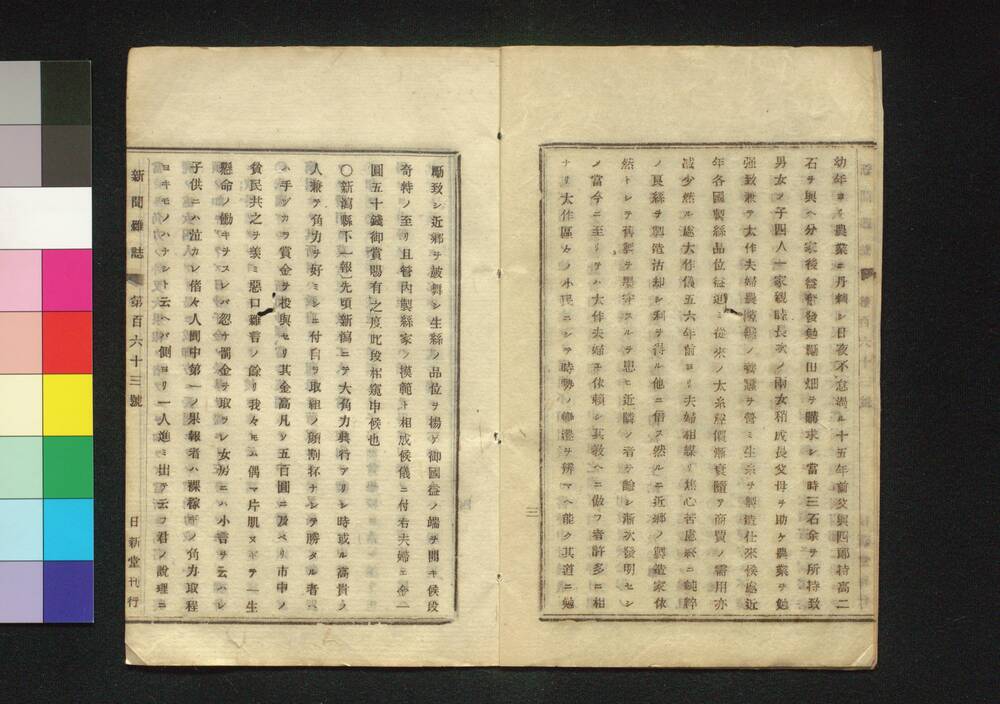 幼年ヨリ農業ニ丹精シ日夜不怠遇ル十五年前父與四郎特高二
石ヲ與ヘ分家後益奮發勉勵田畑ヲ購求シ當時三石余ヲ所持致
男女ノ子四人一家親睦長次ノ兩女稍成長父母ヲ助ケ農業ヲ勉
强致兼テ太作夫婦農隙ノ養蠶ヲ營ミ生糸ヲ製造仕來候處近
年各國製絲品位益進ミ從來ノ大糸經價漸衰隨テ商買ノ需用亦
减少然ル處太作儀五六年前ヨリ夫婦相謀リ焦心苦慮終ニ純粹
ノ良絲ヲ製造沽却シ利ヲ得ル他ニ倍ス然ルニ近鄉ノ製造家依
然トシテ舊製ヲ墨守スルヲ患ヒ近隣ノ者ヲ諭シ漸次發明セシ
ノ當今ニ至リテハ太作夫婦ニ依賴シ其敎ヘニ倣フ者許多ニ相
ナリ太作區々ノ小民ニシテ時勢ノ變遷ヲ辨マヘ能ク其道ニ勉
勵致シ近鄉ヲ鼓舞シ生絲ノ品位ヲ揚ゲ御國益ノ端ヲ開キ候段
奇特ノ至リ且管內製絲家ノ摸範ト相成候儀ニ付右夫婦ェ金二
圓五十錢御賞賜有之度此段相窺申候也
〇新瀉縣下一報先頃新瀉ニテ大角力興行アリシ時或ル高貴ノ
人兼テ角力ヲ好ミシニ付自ラ取組ノ顏割抔ナシテ勝タル者ヘ
ハ手ヅカラ賞金ヲ投與セリ其金高凡ソ五百圓ニ及ベリ市中ノ
貧民共之ヲ羨ミ惡口雜言ノ餘リ我々モ偶マ片肌ヌギテ一生
懸命ノ働キヲスレバ忽チ罰金ヲ取ラレ女房ニハ小言ヲ云ハレ
子供ニハ泣カレ偖々人間中第一ノ果報者ハ裸稼ギノ角力取程
ヨキモノハナシト云ヘバ側ヨリ一人進ミ出テ云フ君ノ說理ニ
新聞雜誌 第百六十三號 日新堂刊行
三